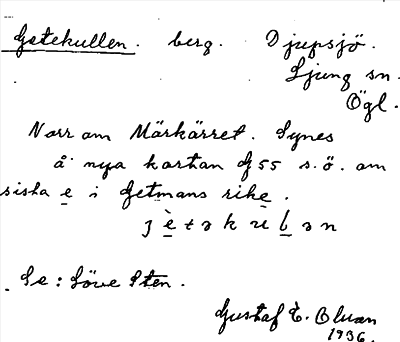 Getekullen. berg. Djupsjö.
Ljung sn.
Ögl.
Norr om Mörkärret. Synes
å nya kartan G55 s.ö. om
sista e i Getmans rike.
Se: Löve Sten.
Gustaf E. Bluan
1936.